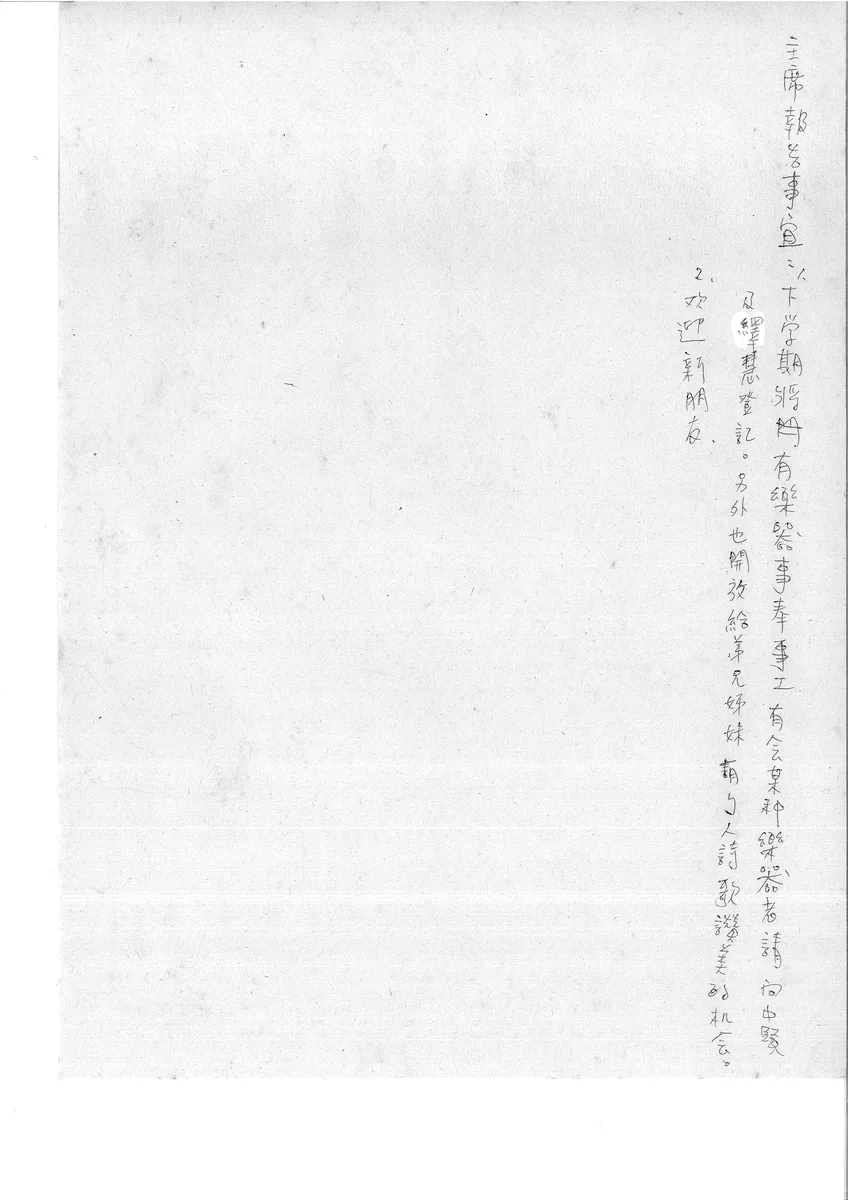 主席報告事宜:1、下学期將開有樂器事奉事工有会某种樂器者請向中賢
及繹慧登記。另外也開放給弟兄姊妹有个人詩歌讚美的机会。
2、欢迎新朋友.